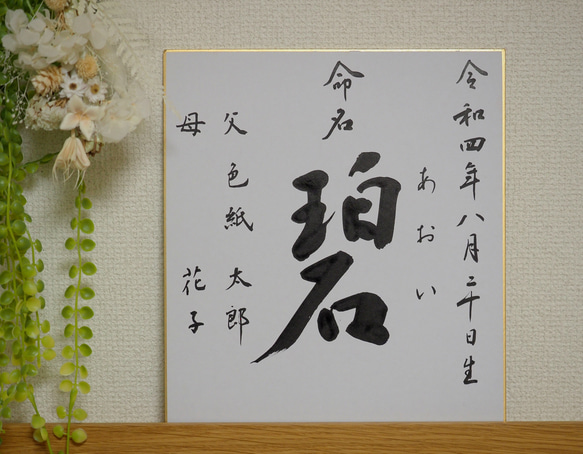 令和四年八月二十日生
あおい
命名
碧
父 色紙 太郎
母 花子